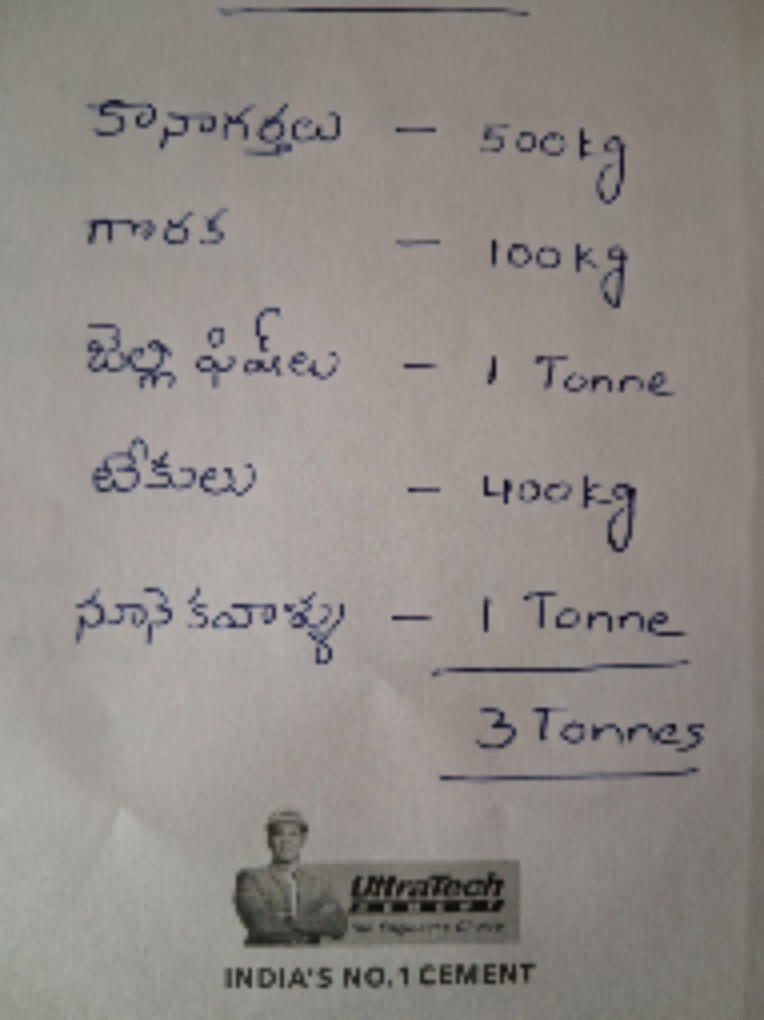 కానాగర్తలు - 500kg
గొరక - 100kg
జెల్లి ఫిష్‌లు - 1 Tonne
టేకులు - 400kg
నూనె కవాళ్ళు - 1 Tonne
3 Tonnes
UltraTech
CEMENT
The Engineer's Choice
INDIA'S NO.1 CEMENT